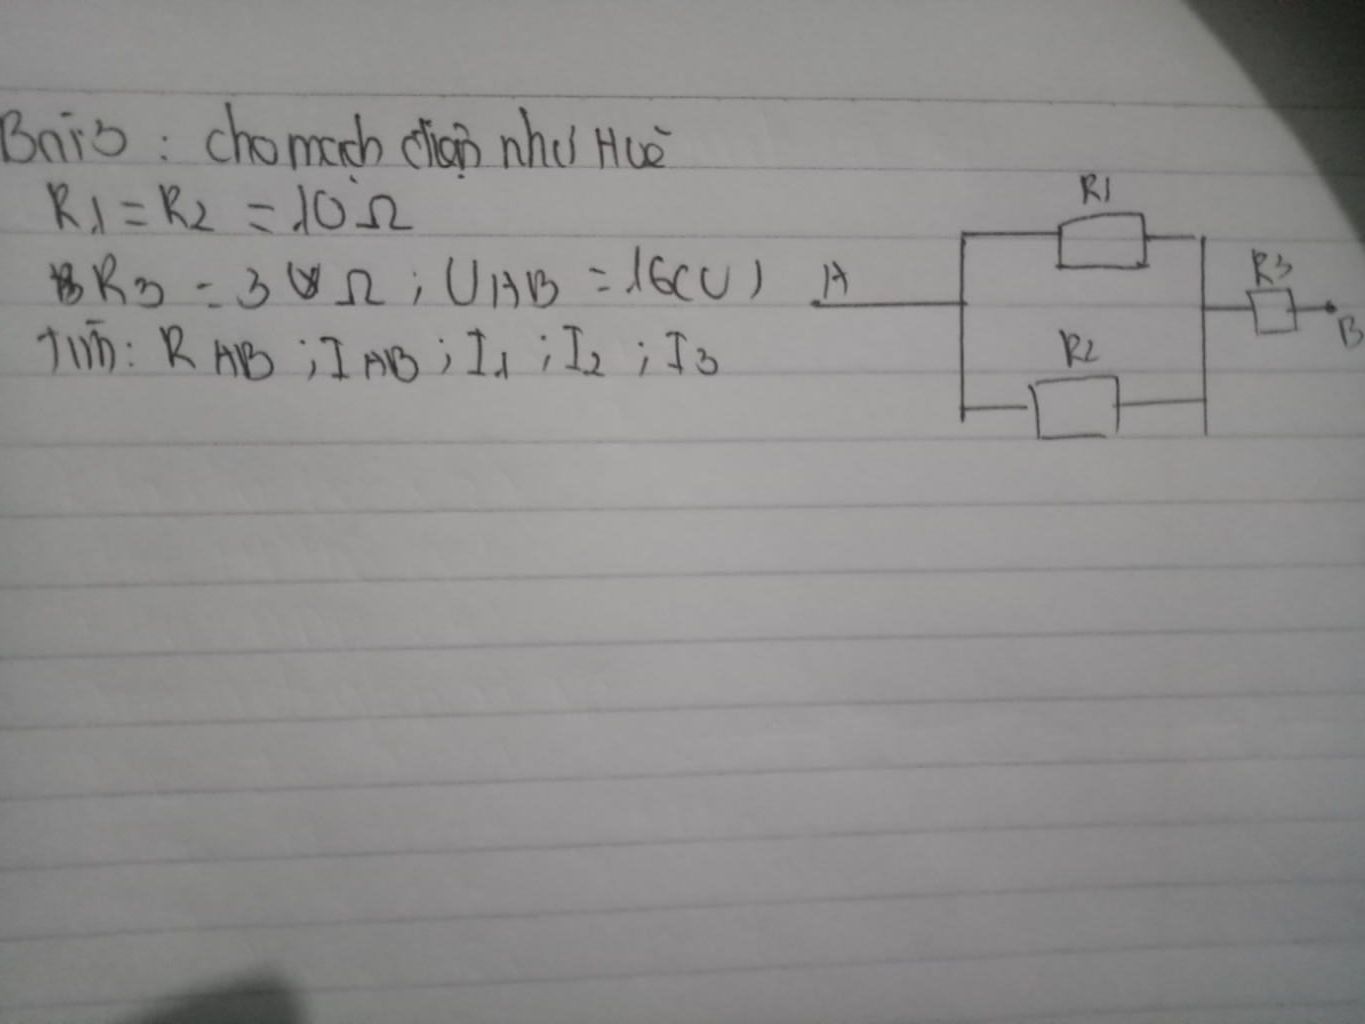 Bài 3 : cho mạch điện như Huè
R1 = R2 = 10 Ω
R3 = 3 Ω ; UAB = 16(V)
Tìm : RAB ; IAB ; I1 ; I2 ; I3
A
R1
R2
R3
B